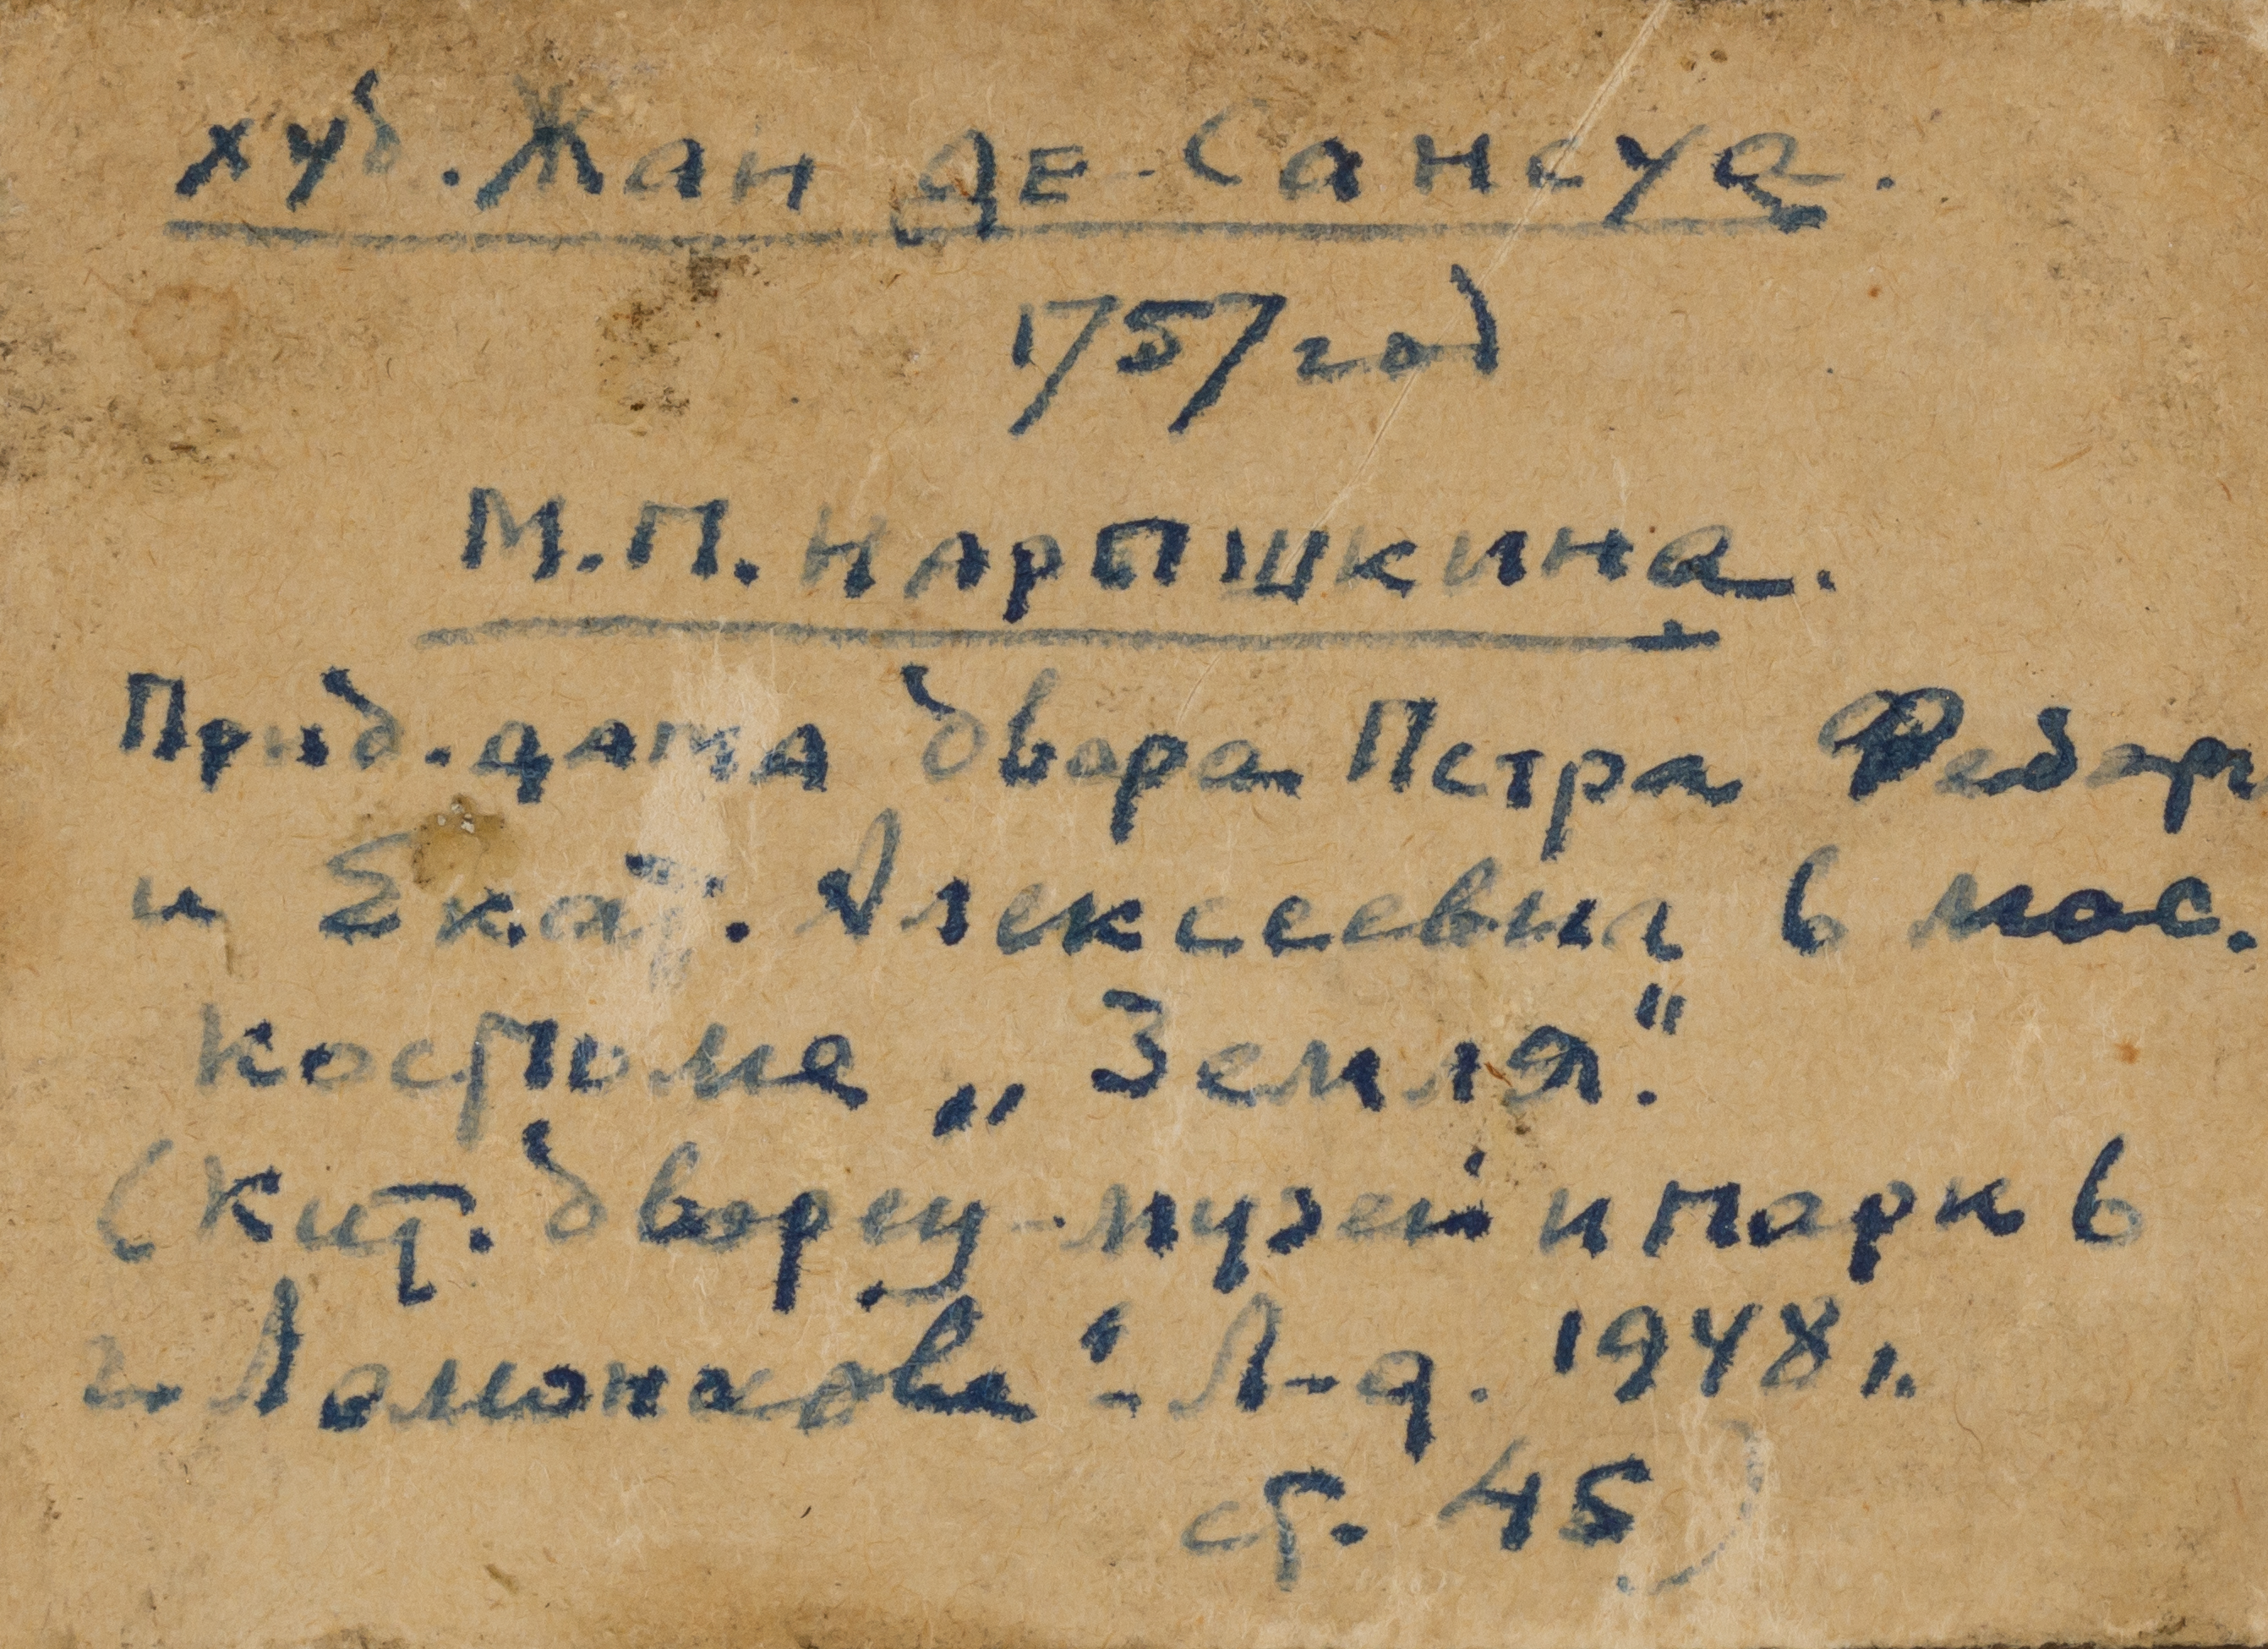 худ. Жан де-Сансуа.
1757 год
М.П. Нарышкина.
Прид. дама двора Петра Федор
и Екат. Алексеевны в мас.
костюме „Земля."
(Кит. дворец-музей и парк в
г. Ломоносове". Л-д. 1948 г.
ст. 45)